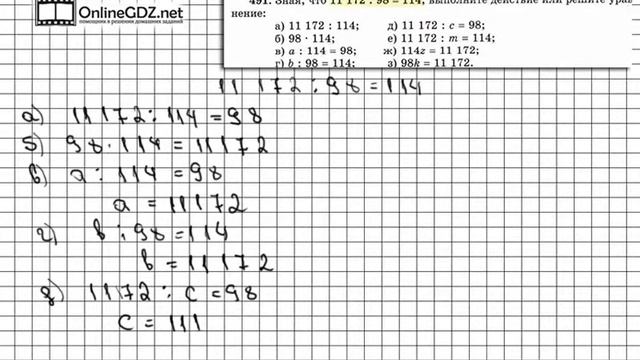 OnlineGDZ.com
помощник в решении домашних заданий
491. Зная, что 11 172 : 98 = 114, выполните действие или решите урав
нение:
а) 11 172 : 114; д) 11 172 : c = 98;
б) 98 · 114; е) 11 172 : m = 114;
в) a : 114 = 98; ж) 114z = 11 172;
г) b : 98 = 114; з) 98k = 11 172.
11 172 : 98 = 114
а) 11 172 : 114 = 98
б) 98 · 114 = 11172
в) a : 114 = 98
a = 11172
г) b : 98 = 114
b = 11172
д) 11172 : c = 98
c = 111